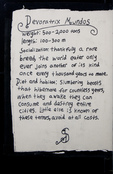 Devoratrix Mundos
weight: 500-2,000 tons
length: 100-300 m
Socialization: thankfully a rare
breed, the world eater only
ever joins another of its kind
once every thousand years or more.
Diet and habitat: Slumbering beasts
that hibernate for countless years,
when they awake they can
consume and destroy entire
cities. Little else is known of
these terrors, avoid at all costs.